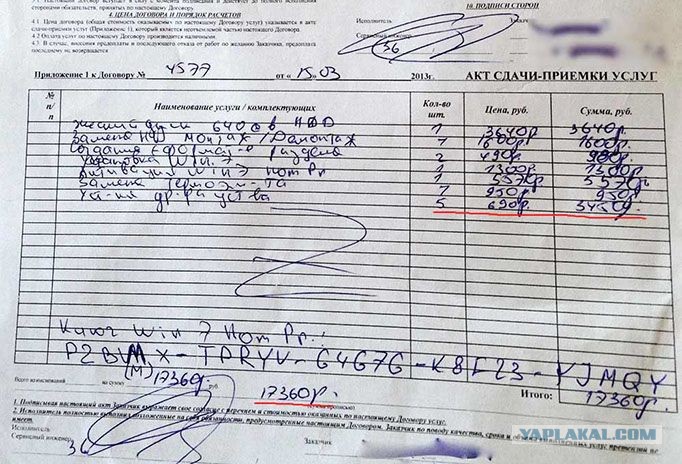 сторонами обязательств, принятых по настоящему Договору.
4. ЦЕНА ДОГОВОРА И ПОРЯДОК РАСЧЕТОВ
4.1. Цена договора (общая стоимость оказываемых по настоящему Договору услуг) указывается в акте
сдачи-приемки услуг (Приложение 1), который является неотъемлемой частью настоящего Договора.
4.2 Оплата услуг по настоящему Договору производится наличными.
4.3. В случае, внесения предоплаты и последующего отказа от работ по желанию Заказчика, предоплата
последнему не возвращается
10. ПОДПИСИ СТОРОН
Исполнитель
Сервисный инженер
36
Приложение 1 к Договору № 4577 от « 15 » 03 2013г. АКТ СДАЧИ-ПРИЕМКИ УСЛУГ
№ п/п Наименование услуги / комплектующих Кол-во шт. Цена, руб. Сумма, руб.
Жесткий диск 640Gв HDD 1 3640р 3640р
Замена HDD Монтаж/Демонтаж 1 1600р 1600р
Создание и Формат-е раздела 2 490р 980р
Установка Win 7 1 1300р 1300р
Активация Win 7 Hom Pr 1 5570р
Замена Термоэл-та 950р 950р
уст-ка др-ра уст-ва 5 690р 3450р
Ключ Win 7 Hom Pr.:
TPRYV - 6467G - K8F23 - YJMQY
(M)
Всего наименований на сумму 17360р. руб.
17360р.
Итого: 17360р.
1. Подписывая настоящий акт Заказчик выражает свое согласие с перечнем и стоимостью оказанных по настоящему Договору услуг.
2. Исполнитель полностью выполнил возложенные на себя обязательства, предусмотренные настоящим Договором. Заказчик по поводу качества, срока и объема оказанных услуг претензий не
имеет.
Исполнитель
Сервисный инженер
36
Заказчик
YAPLAKAL.COM